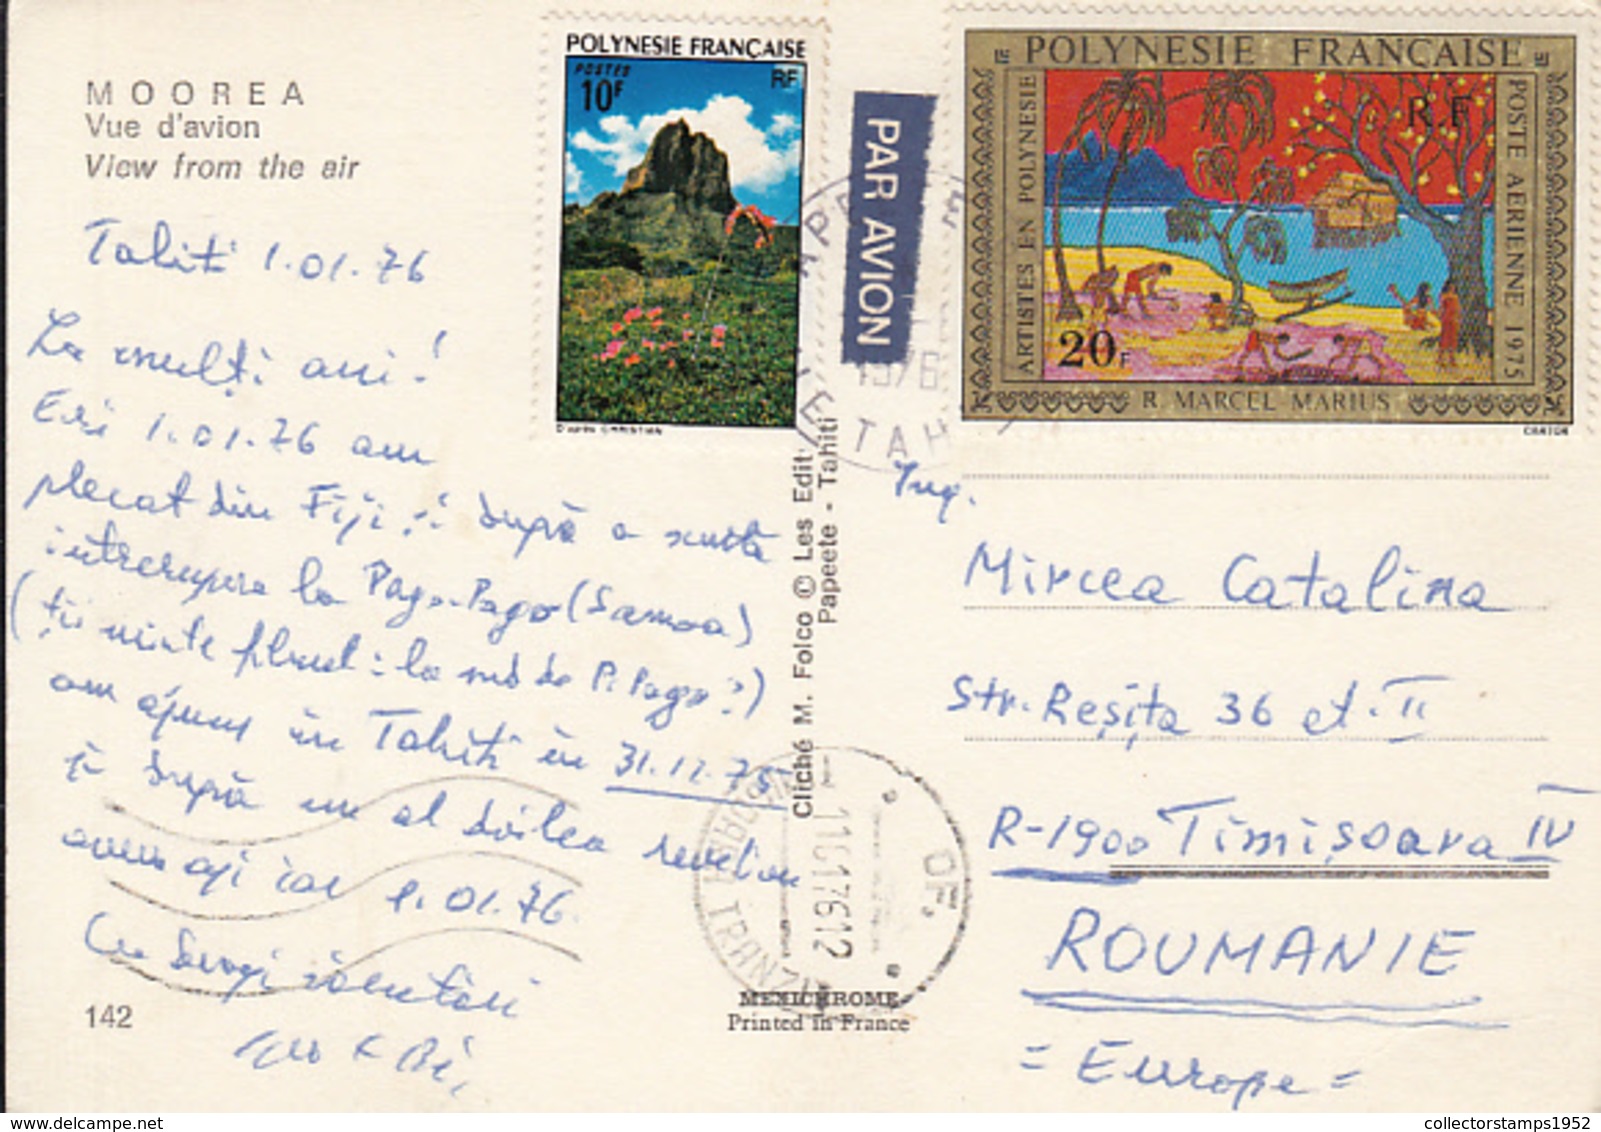 MOOREA
Vue d'avion
View from the air
Tahiti 1.01.76
La mulți ani!
Eri 1.01.76 am
plecat din Fiji și după o scurtă
întrerupere la Pago-Pago (Samoa)
(ții minte filmul: la nord de P. Pago?)
am ajuns în Tahiti în 31.12.75
și după un al doilea revelion
avem azi iar 1.01.76.
Cu dragi sărutări
142
POLYNESIE FRANÇAISE
POSTES
RF
10F
D'après CHRISTIAN
PAR AVION
1976
TAH
POLYNESIE FRANÇAISE
RF
ARTISTES EN POLYNESIE
POSTE AERIENNE 1975
20F
R. MARCEL MARIUS
CARTOR
Cliché M. Folco © Les Edit
Papeete - Tahiti
TRANZIT
OF.
MEXICHROME
Printed in France
Ing.
Mircea Catalina
Str. Reșița 36 et. II
R-1900 Timișoara IV
ROUMANIE
= Europe =
collectorstamps1952